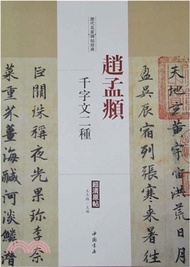 歷代名家碑帖經典
趙孟頫
千字文二種
超清原帖
中國書店
天地玄黃宇宙洪荒日月
盈昃辰宿列張寒來暑往
巨闕珠稱夜光果珍李柰
菜重芥薑海鹹河淡鱗